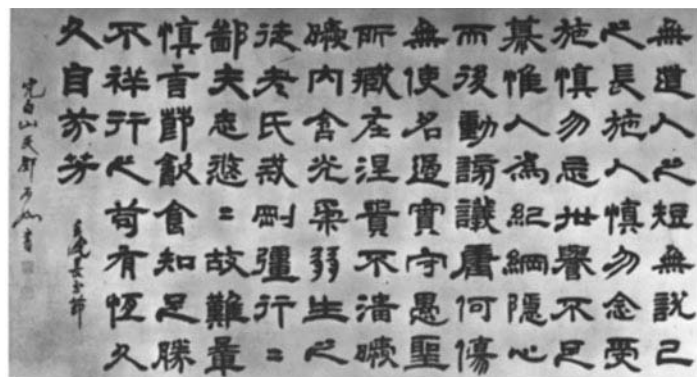 無道人之短無說己
之長施人慎勿念受
施慎勿忘世譽不足
慕惟人為紀綱隱心
而後動謗議庸何傷
無使名過實守愚聖
所臧在涅貴不淄曖
曖內含光柔弱生之
徒老氏戒剛彊行〻
鄙夫志悠〻故難量
慎言節飲食知足勝
不祥行之苟有恆久
久自芬芳
完白山民鄧石如書